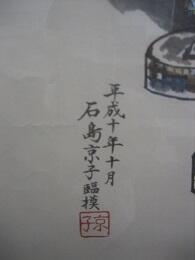 平成十年十月
石島京子臨模
京子